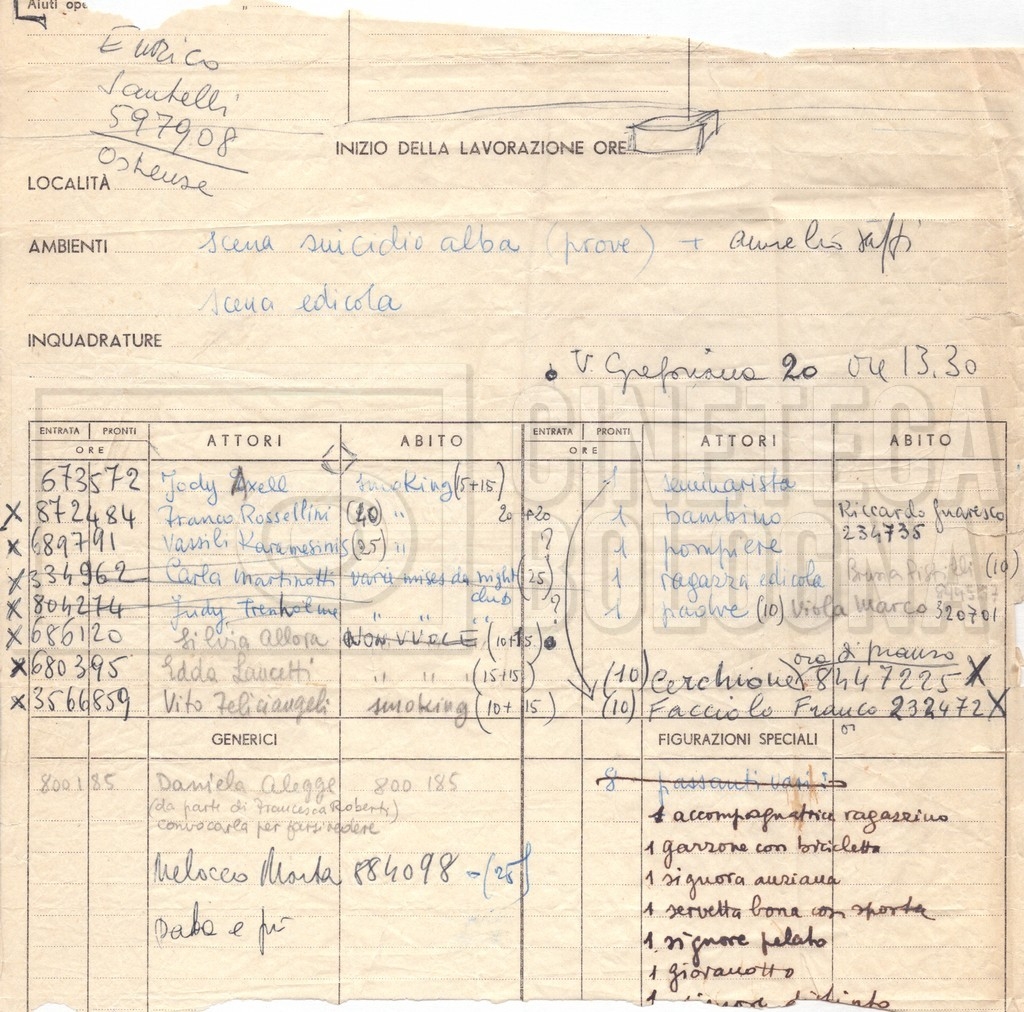 Aiuti ope
Enrico
Santelli
597908
Ostense
INIZIO DELLA LAVORAZIONE ORE
LOCALITÀ
AMBIENTI scena suicidio alba (prove) + Aurelio Saffi
scena edicola
INQUADRATURE
V. Gregoriana 20 ore 13.30
CINETECA
BOLOGNA
ENTRATA PRONTI ATTORI ABITO ENTRATA PRONTI ATTORI ABITO
ORE ORE
673572 Jody Axell smoking (5+15) 1 seminarista
X 872484 Franco Rossellini (20) " 20 +20 1 bambino Riccardo Guaresco
234735
x 689791 Vassili Karamesinis (25) " ? 1 pompiere
x 334962 Carla Martinotti varie mises da night (25) 1 ragazza edicola (10)
club
x 804274 Judy Trenholme " " " ? 1 padre (10) Viola Marco 320701
x 686120 Silvia Allora NON VUOLE (10+15)
ora di pranzo
x 680395 Edda Lancetti " " (15+15) (10) Cerchione 8447225 X
x 3566859 Vito Feliciangeli smoking (10+15) (10) Facciolo Franco 232472 X
or
GENERICI FIGURAZIONI SPECIALI
800185 Daniela Alegge 800 185 8 passanti vari
(da parte di Francesca Roberti)
convocarla per farsi vedere
1 accompagnatrice ragazzino
1 garzone con bicicletta
Melocco Marta 884098 - (25)
1 signora anziana
1 servetta bona con sporta
Daba e più
1 signore pelato
1 giovanotto
1 signore distinto